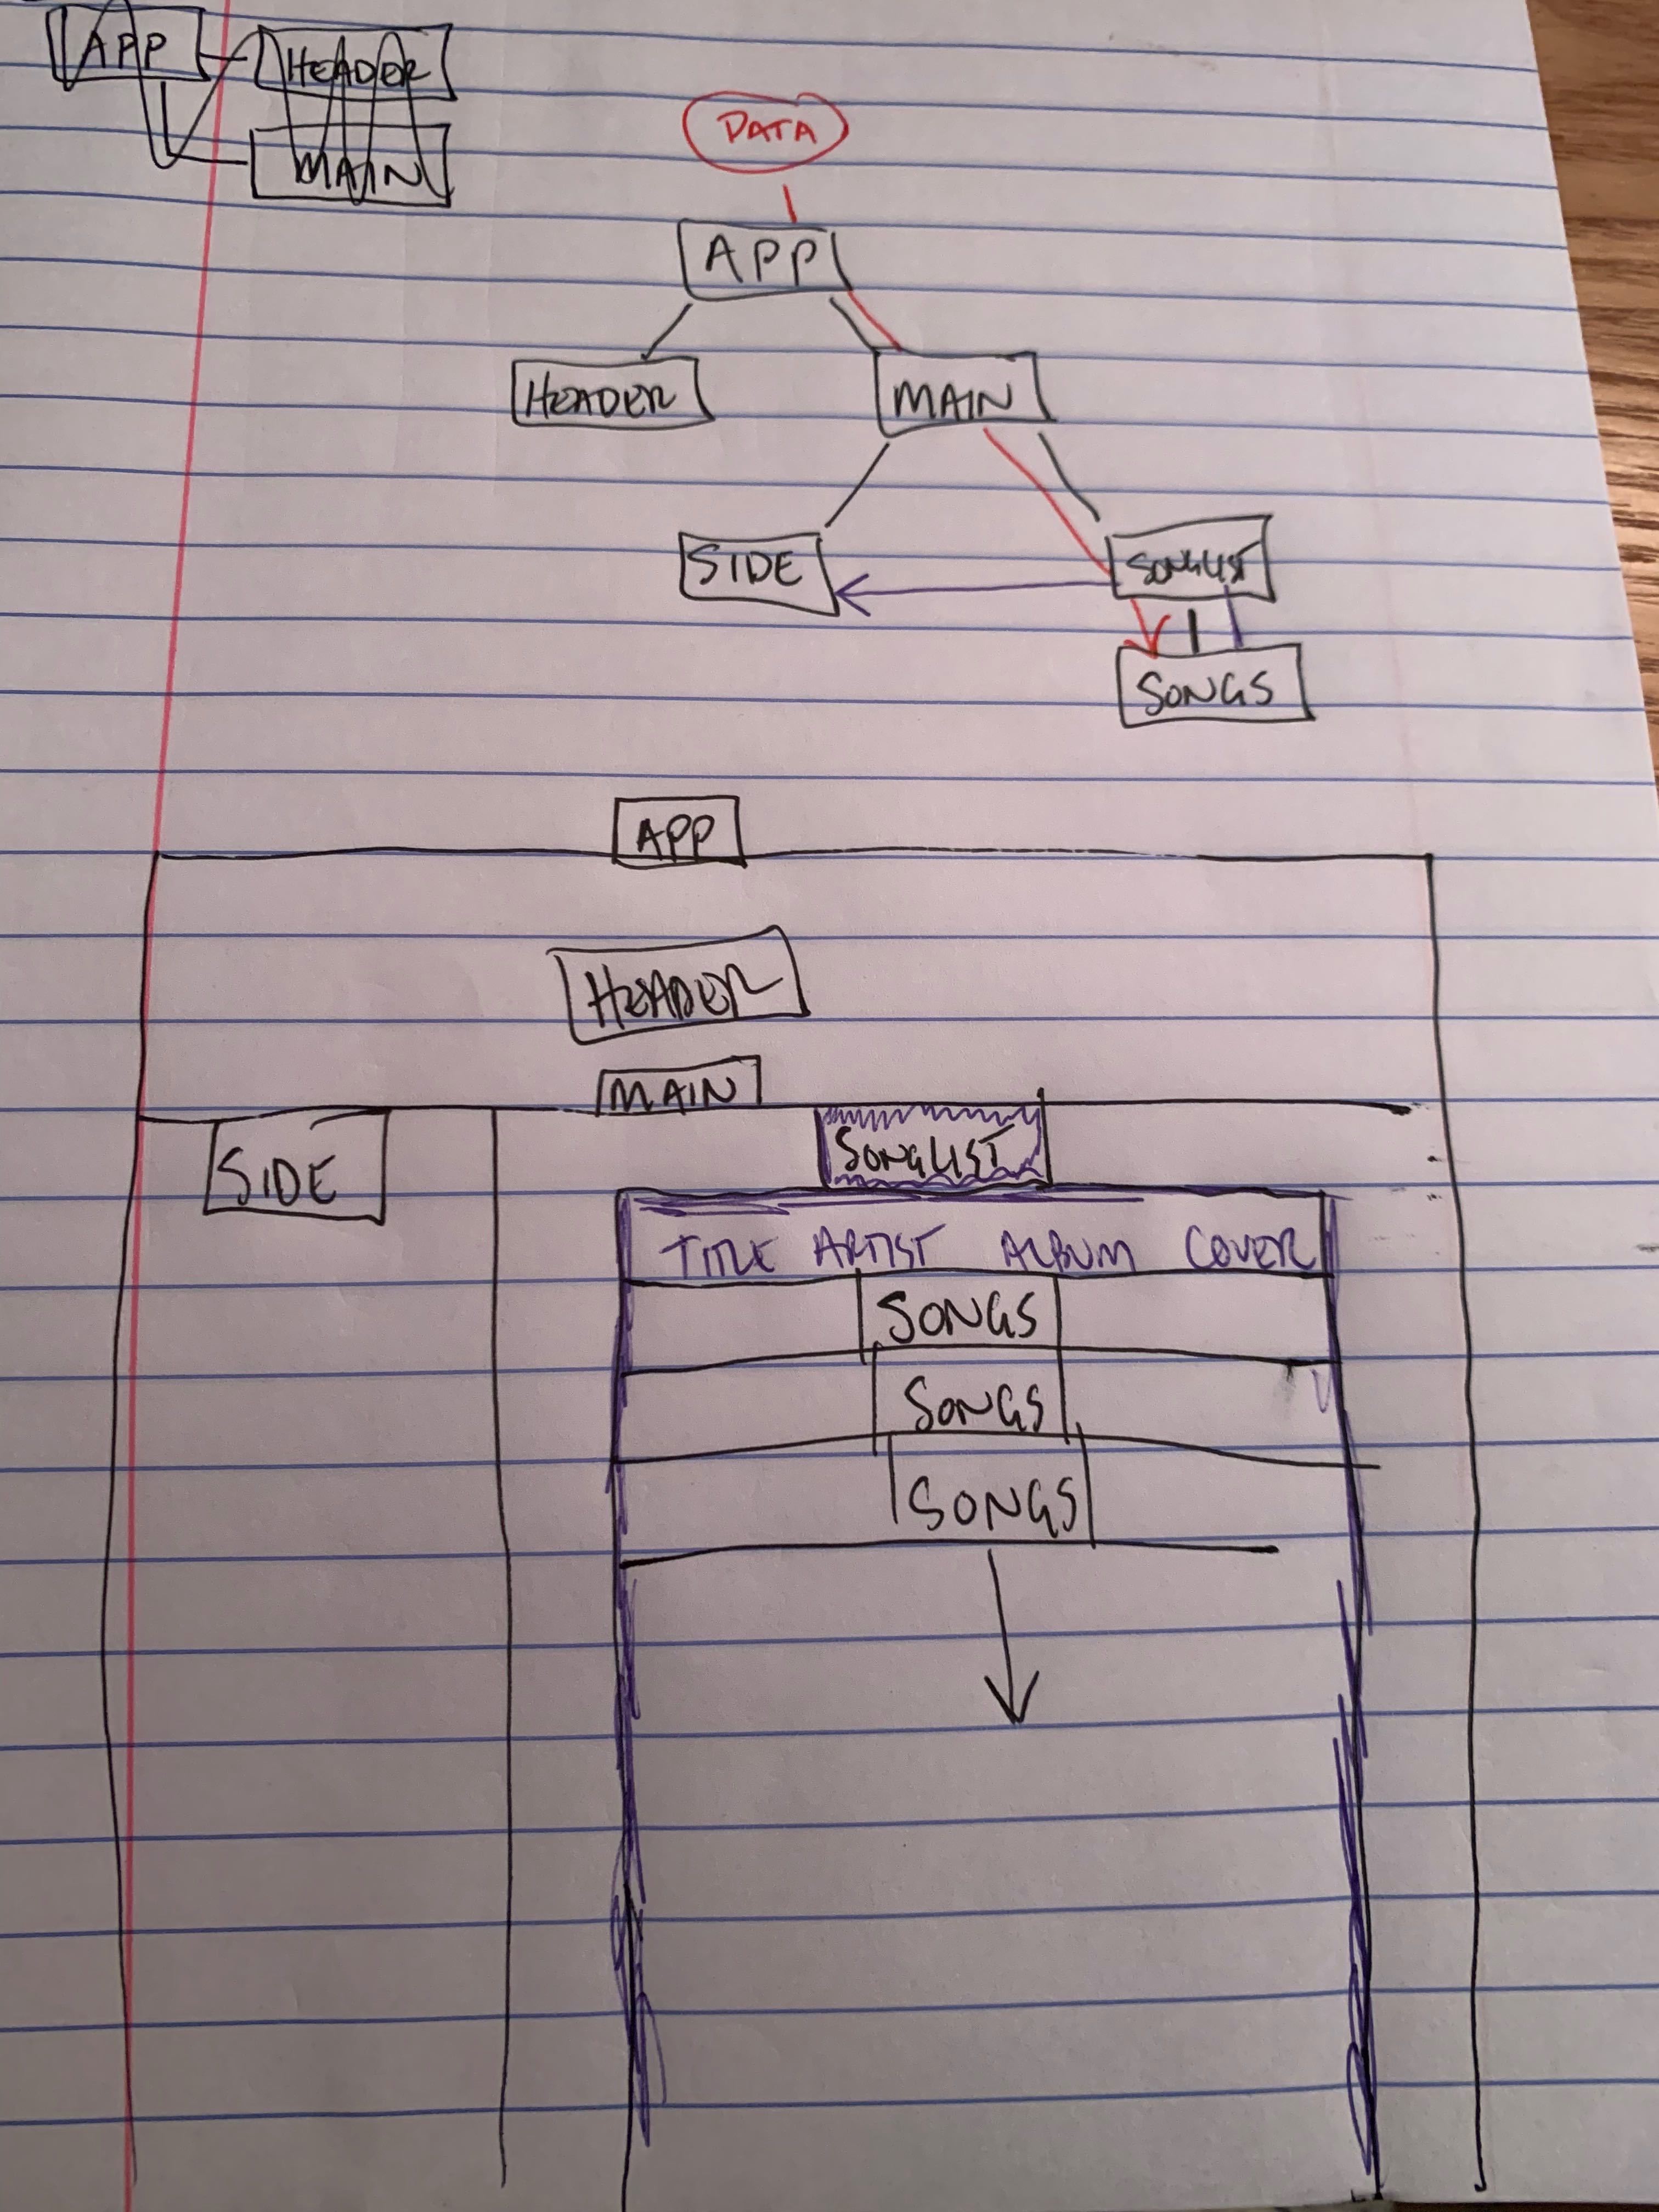 APP HEADER
MAIN
DATA
APP
HEADER MAIN
SIDE SONGLIST
SONGS
APP
HEADER
MAIN
SIDE SONGLIST
TITLE ARTIST ALBUM COVER
SONGS
SONGS
SONGS